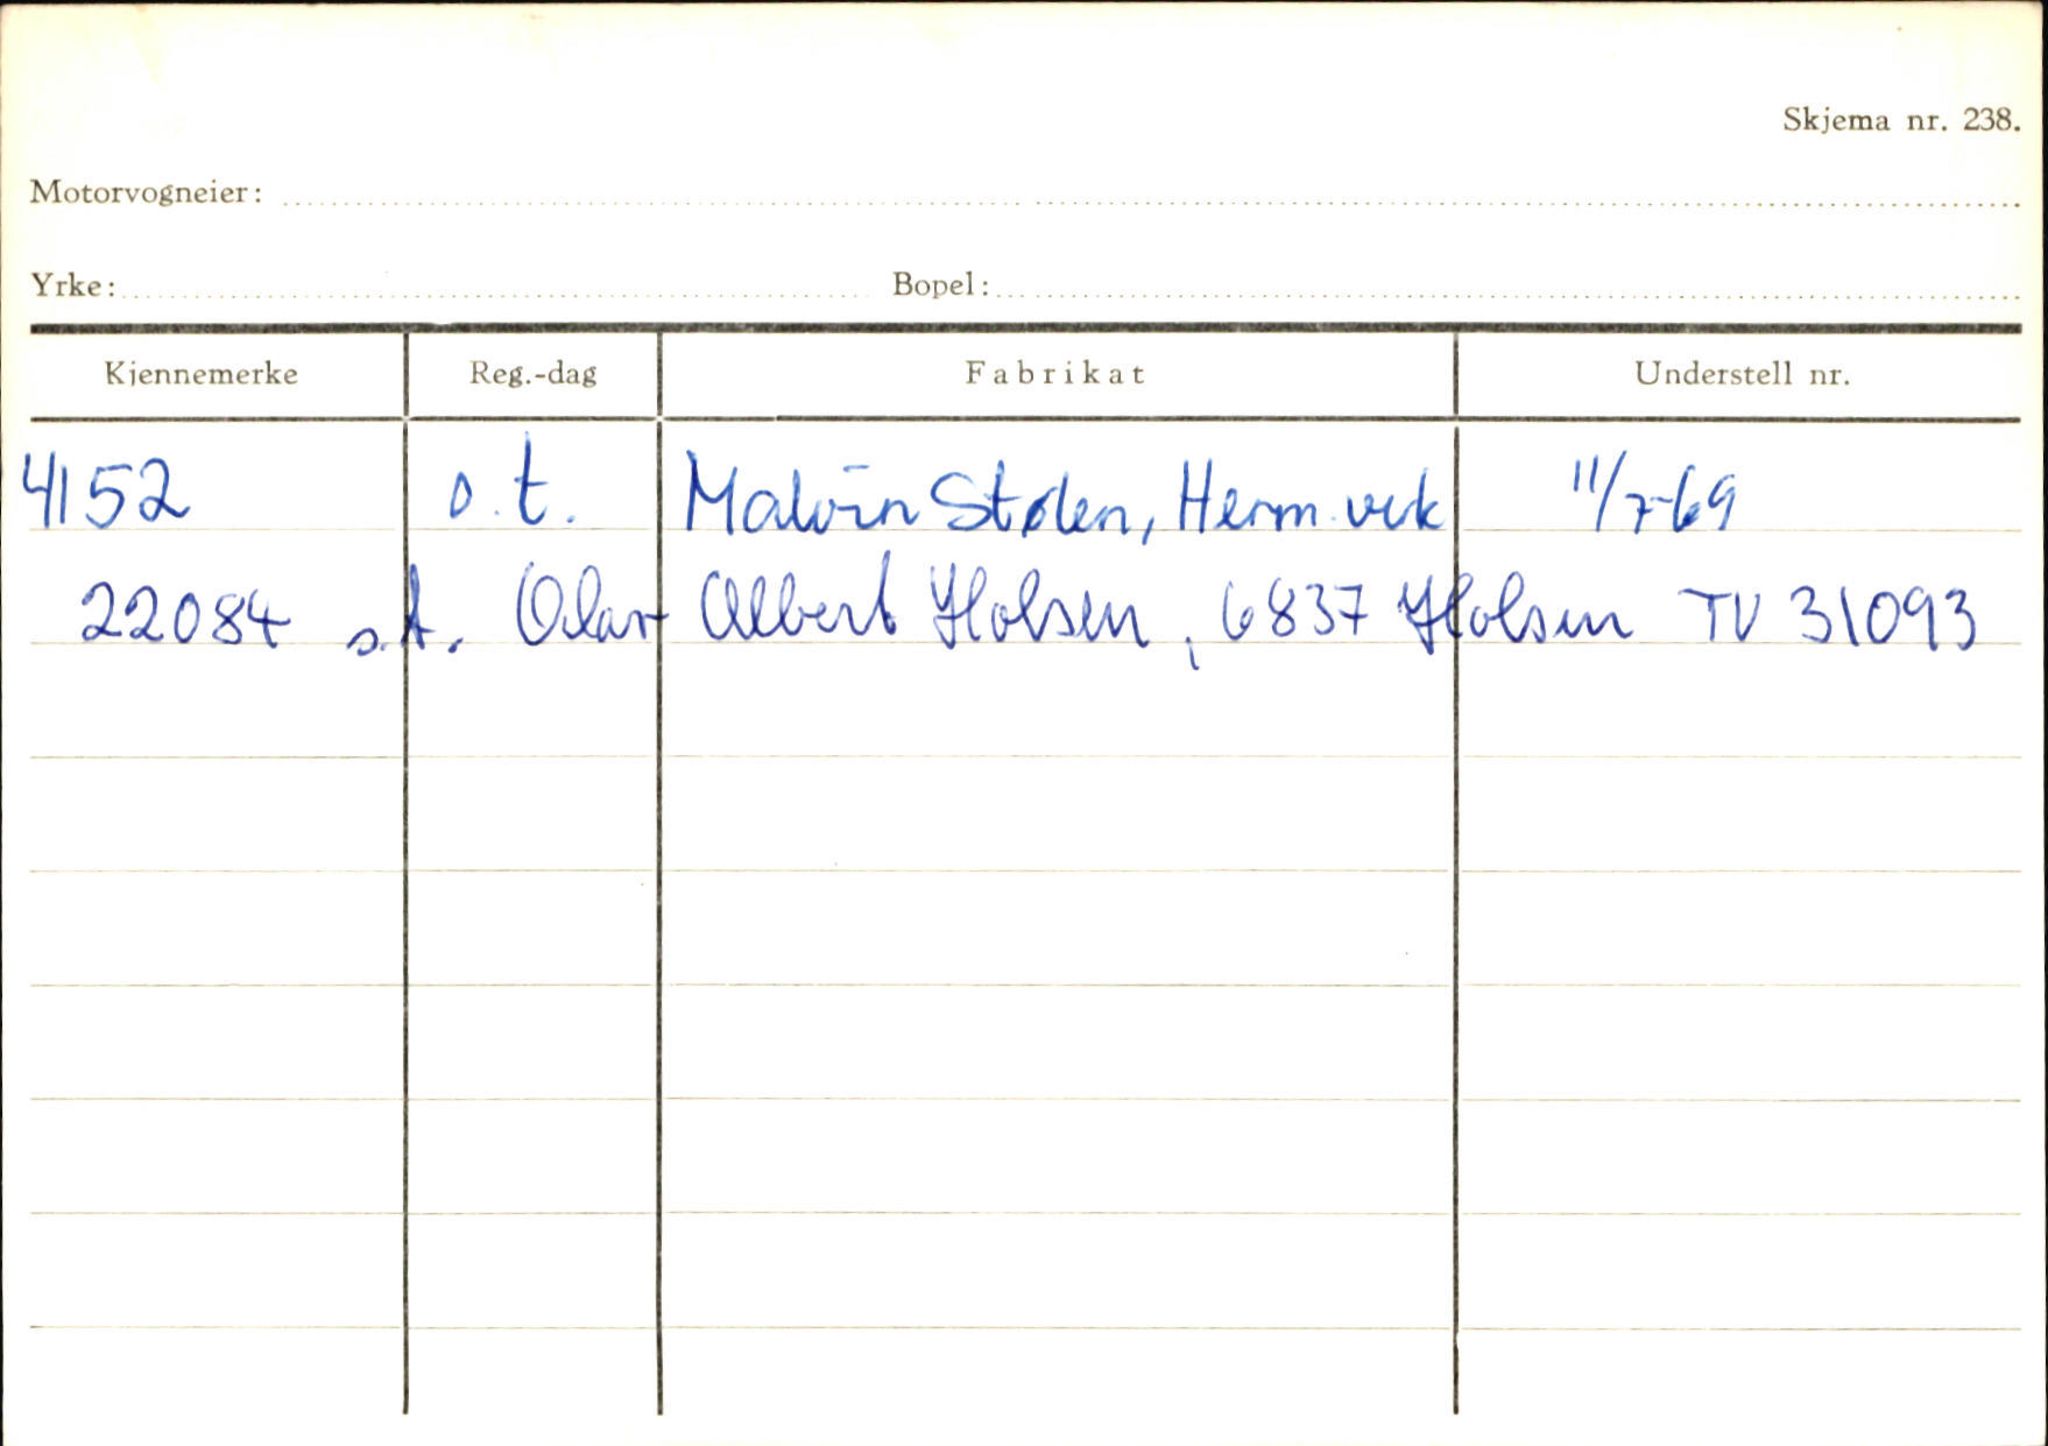 Skjema nr. 238.
Motorvogneier:
Yrke: Bopel:
Kjennemerke Reg.-dag Fabrikat Understell nr.
4152 o.t. Malvin Stølen, Herm.vik 11/7-69
22084 s.A. Olav Albert Holsen, 6837 Holsen TV 31093